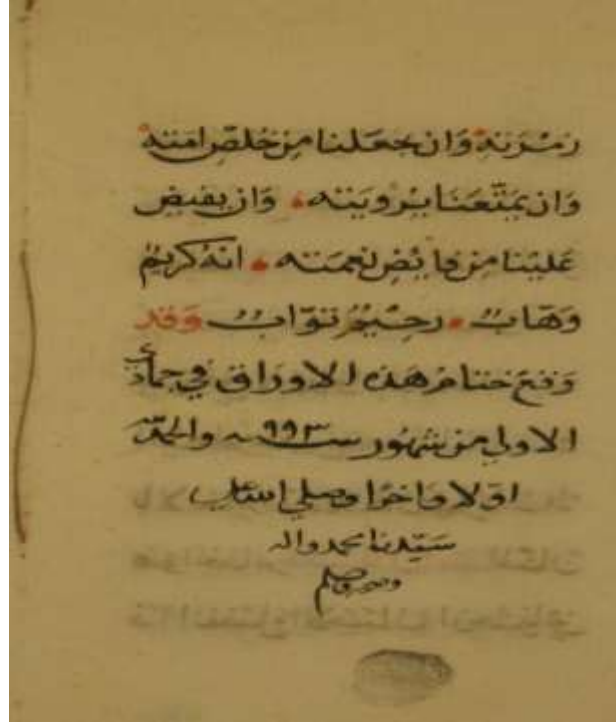 زمرته وان يجعلنا من خلص امته
وان يمتعنا برويته وان يفيض
علينا من فايض نعمته انه كريم
وهاب رحيم تواب وقد
وقع ختام هذه الاوراق في جمادى
الاولى من شهور سنة ٩٩٣ والحمد لله
اولا واخرا وصلى الله على
سيدنا محمد واله
وصحبه وسلم